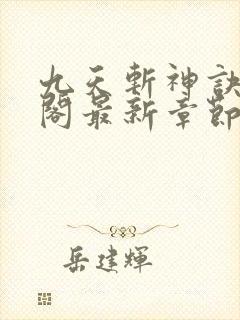 九天斬神訣
閣最新章節
岳建輝